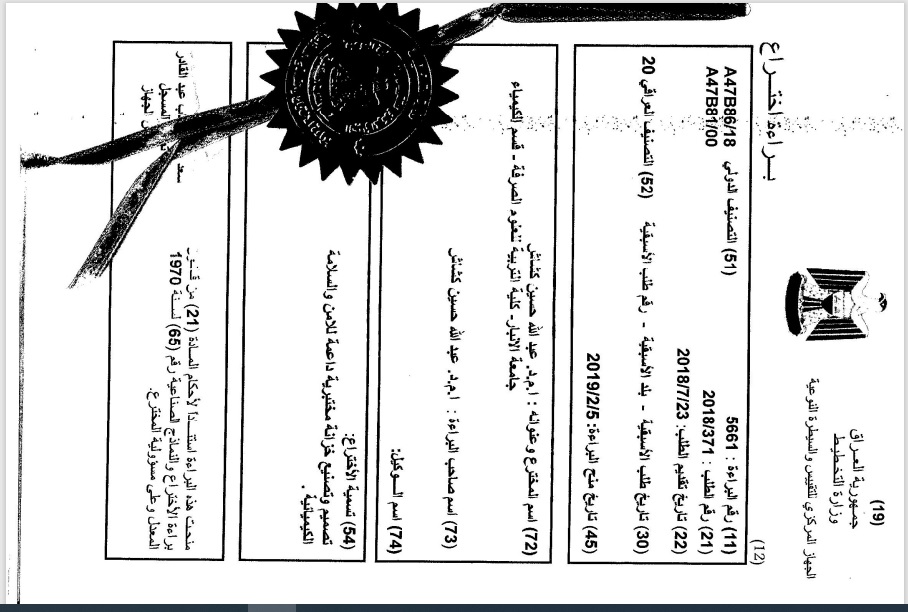 (19)
جمهورية العراق
وزارة التخطيط
الجهاز المركزي للتقييس والسيطرة النوعية
(12)
براءة اختراع
(11) رقم البراءة : 5661
(21) رقم الطلب : 2018/371
(22) تاريخ تقديم الطلب: 2018/7/23
(51) التصنيف الدولي A47B86/18
A47B81/00
(30) تاريخ طلب الأسبقية - بلد الأسبقية - رقم طلب الأسبقية
(52) التصنيف العراقي 20
(45) تاريخ منح البراءة: 2019/2/5
(72) اسم المخترع وعنوانه : ا.م.د. عبد الله حسين كشاش
جامعة الانبار- كلية التربية للعلوم الصرفة - قسم الكيمياء
(73) اسم صاحب البراءة : ا.م.د. عبد الله حسين كشاش
(74) اسم الوكيل:
(54) تسمية الأختراع:
تصميم وتصنيع خزانة مختبرية داعمة للامن والسلامة
الكيميائية .
منحت هذه البراءة استنادا لأحكام المادة (21) من قانون
براءة الأختراع والنماذج الصناعية رقم (65) لسنة 1970
المعدل وعلى مسؤولية المخترع.
عبد القادر
المسجل
الجهاز